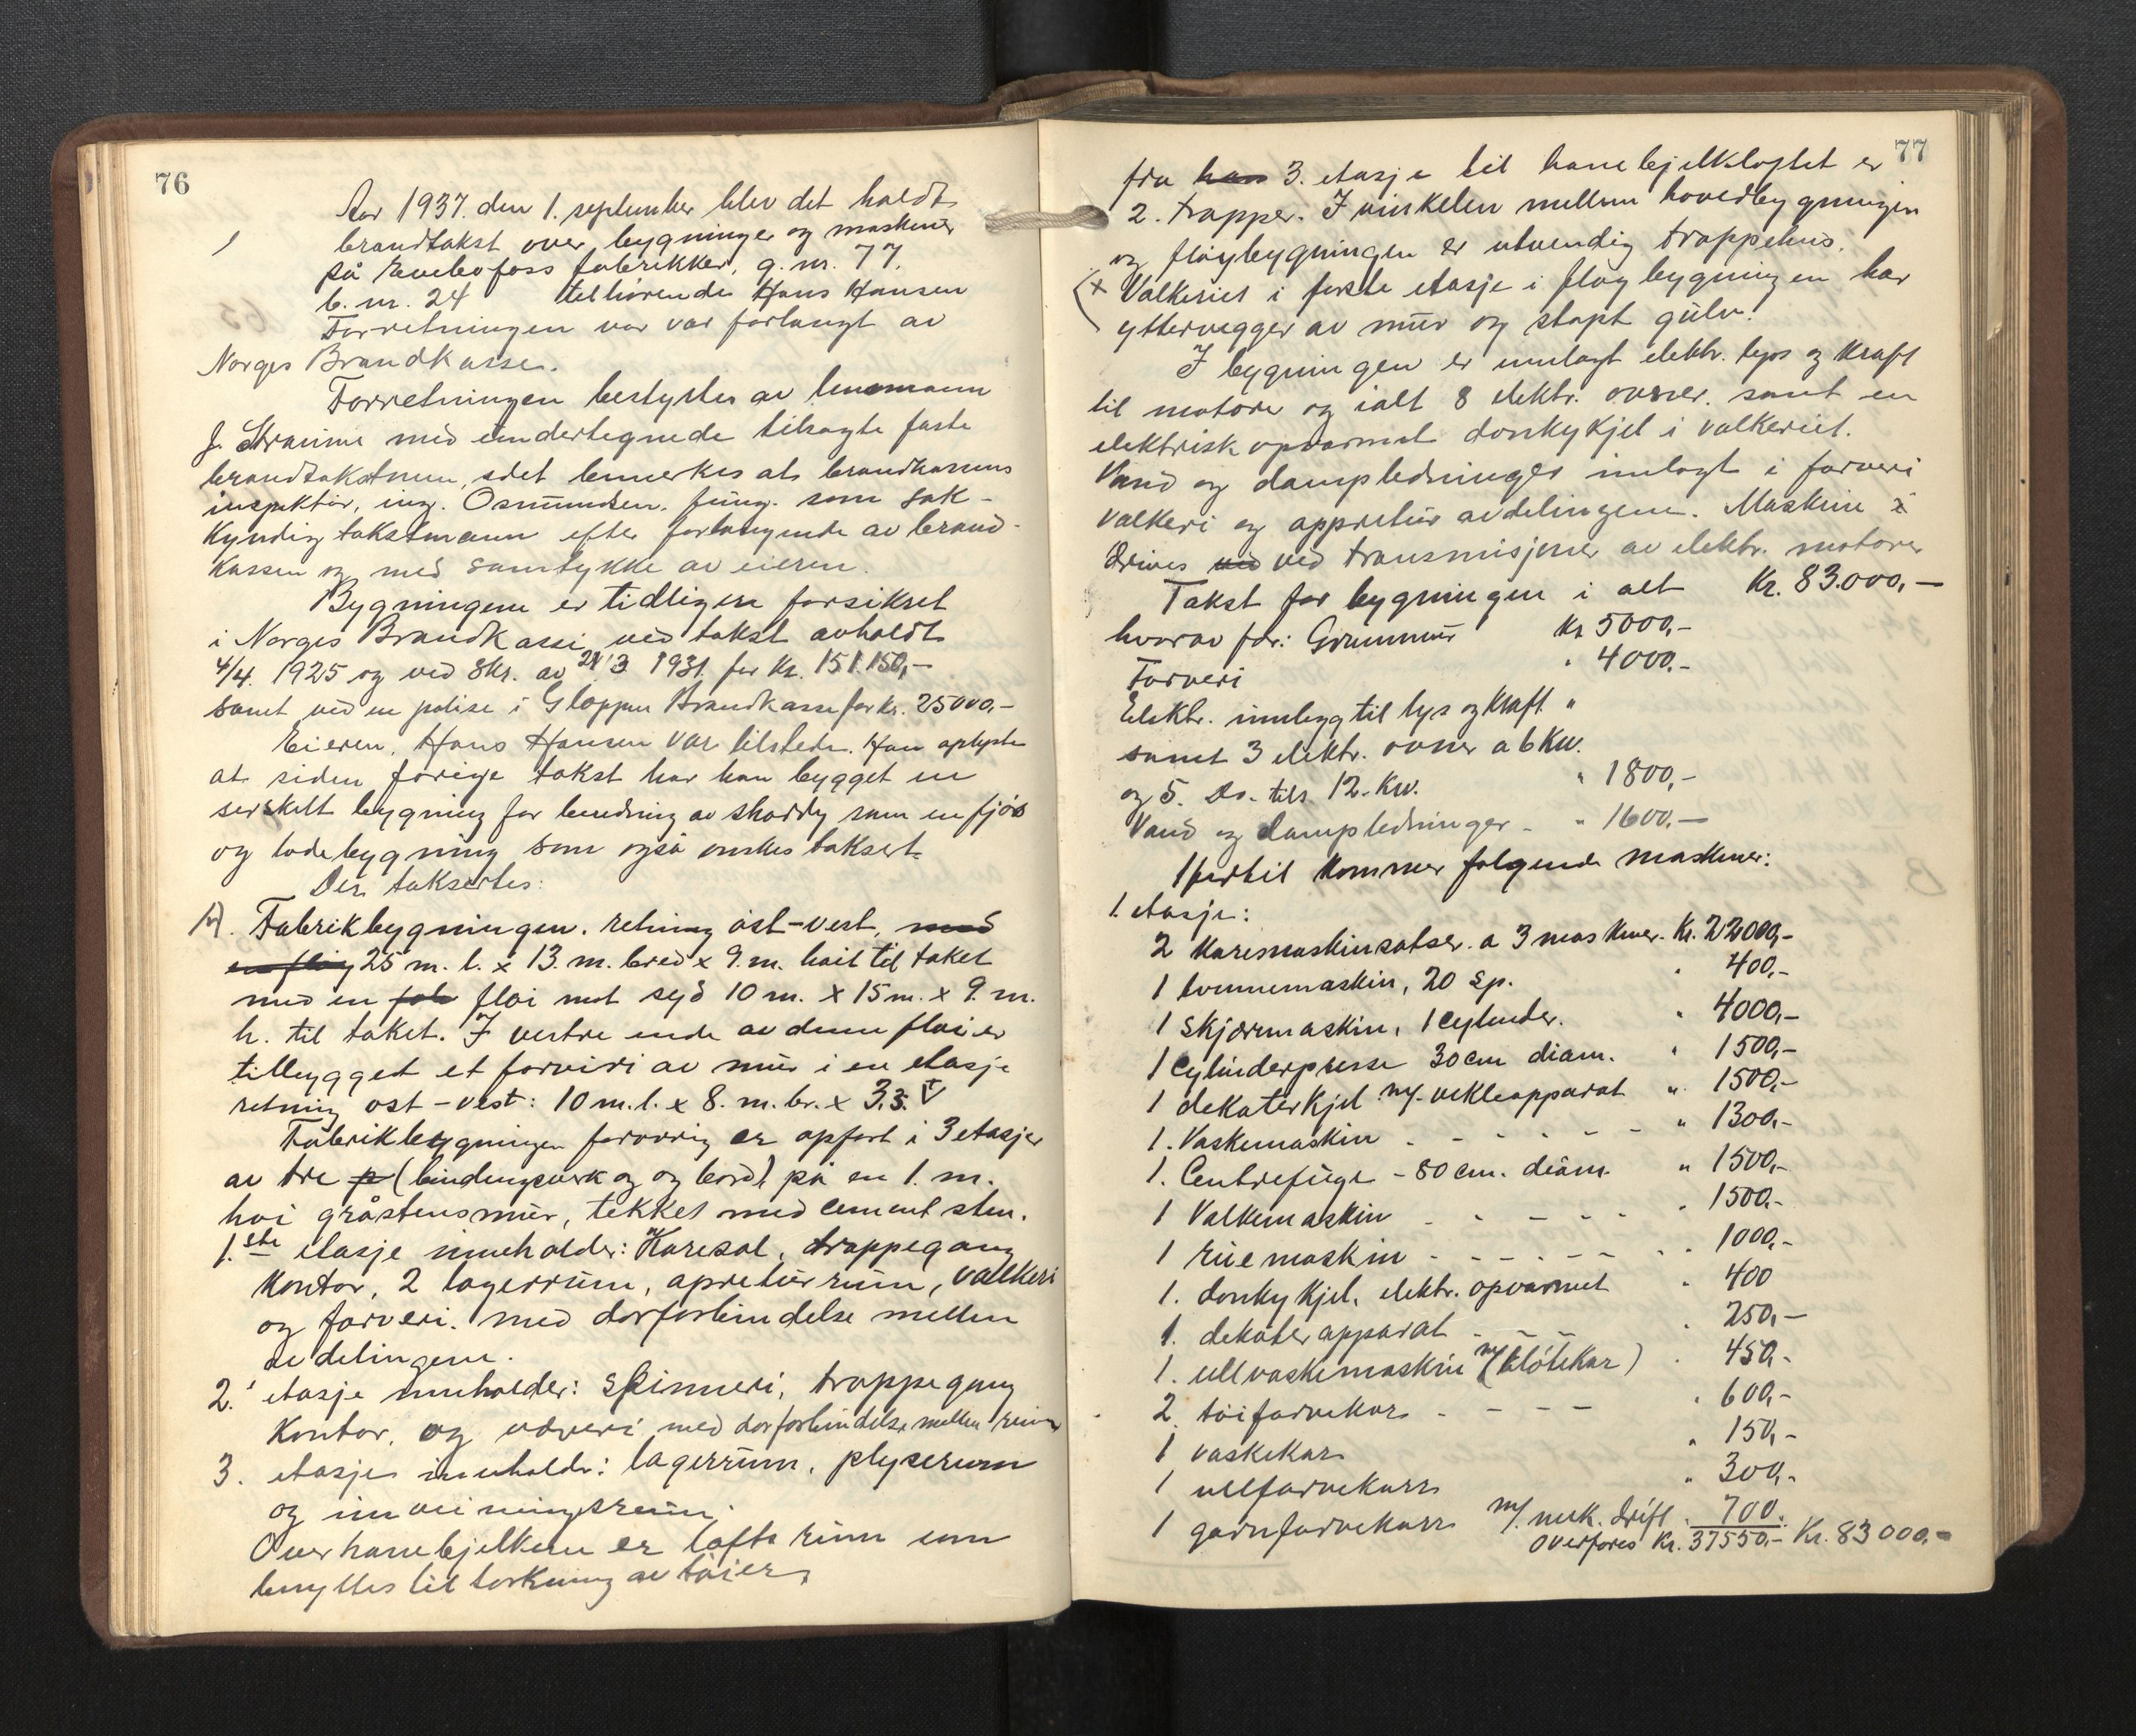 76
Aar 1937. den 1. september blev det holdt
brandtakst over bygninger og maskiner
på Evebofoss fabrikker, g. nr. 77,
b. nr. 24 tilhörende Hans Hansen
Forretningen var var forlangt av
Norges Brandkasse.
Forretningen bestyrtes av lensmann
J. Straume med undertegnede tilsagte faste
brandtakstmen, idet bemerkes at brandkassens
inspektör, ing. Osmundsen. fung. som sak-
kyndig takstmann efter forlangende av brand-
kassen og med samtykke av eieren.
Bygningene er tidligere forsikret
i Norges Brandkasse ved takst avholdt
4/4. 1925 og ved skr. av 21/3 1931. for kr. 151.150,-
samt ved en polise i Gloppen Brandkasse for kr. 25000,-
Eieren, Hans Hansen var tilstede. Han oplyste
at siden forrige takst har han bygget en
serskilt bygning for brending av shoddy samt en fjös
og lödebygning som også önskes taksert.
Der taksertes:
A). Fabrikbygningen. retning öst-vest, med
en flöy 25 m. l. x 13. m. bred x 9. m. höit til taket
med en flöi mot syd 10 m. x 15 m. x 9. m.
h. til taket. I vestre ende av denne flöi er
tilbygget et farveri av mur i en etasje
retning öst-vest: 10 m. l. x 8. m. br. x 3,3.
Fabrikbygningen forövrig er opfört i 3 etasjer
av tre p (bindingsverk og og bord) på en 1. m.
höi gråstensmur, tekket med cement sten.
1.ste etasje inneholder: Karesal, trappegang
kontor, 2 lagerrum, apreturrum, valkeri
og farveri. med dörforbindelse mellem
avdelingene.
2. etasje inneholder: Spinneri, trappegang
kontor, og veveri med dörforbindelse mellem rum
3. etasje inneholder: lagerrum, plyserum
og rum
Over hanebjelkene er lofts rum som
benyttes til törkning av töier,
77
fra han 3. etasje til hanebjelkloftet er
2. trapper. I vinkelen mellem hovedbygningen
og flöybygningen er utvendig trappehus.
(x Valkeriet i förste etasje i flöybygningen har
yttervegger av mur og stöpt gulv.
I bygningen er innlagt elektr. lys og kraft
til motorer og ialt 8 elektr. ovner. samt en
elektrisk opvarmet donkykjel i valkeriet.
Vand og dampledninger innlagt i farveri
valkeri og appretur avdelingene. Maskine
drives ved ved transmisjoner av elektr. motorer
Takst for bygningen i alt Kr. 83.000,-
hvorav for: Grunnmur Kr 5000,-
Farveri " 4000,-
Elektr. innlegg til lys og kraft "
samt 3 elektr. ovner a 6 Kw.
og 5. Do. tils. 12. Kw. " 1800,-
Vand og dampledninger - " 1600,-
Hertil kommer fölgende maskiner:
1. etasje:
2 Karemaskinsatser. a 3 maskiner. Kr. 22000,-
1 tvinnemaskin, 20 Sp. " 400,-
1 Skjæremaskin, 1 Cylinder. " 4000,-
1 Cylinderpresse 30 cm diam. " 1500,-
1 dekaterkjel m/. vikleapparat " 1500,-
1. Vaskemaskin - - - - - - " 1300,-
1. Centrefuge - 80 cm. diam. " 1500,-
1 Valkemaskin - - - - - " 1500,-
1 ruemaskin - - - - - - " 1000,-
1. donkykjel, elektr. opvarmet " 400
1. dekaterapparat - - - " 250,-
1. ullvaskemaskin m/(blötekar) " 450,-
2. töifarvekar - - - - " 600,-
1 vaskekar " 150,-
1 ullfarvekar " 300,-
1 garnfarvekar m/. mek. drift " 700.
Overföres Kr. 37550,- Kr. 83 000,-